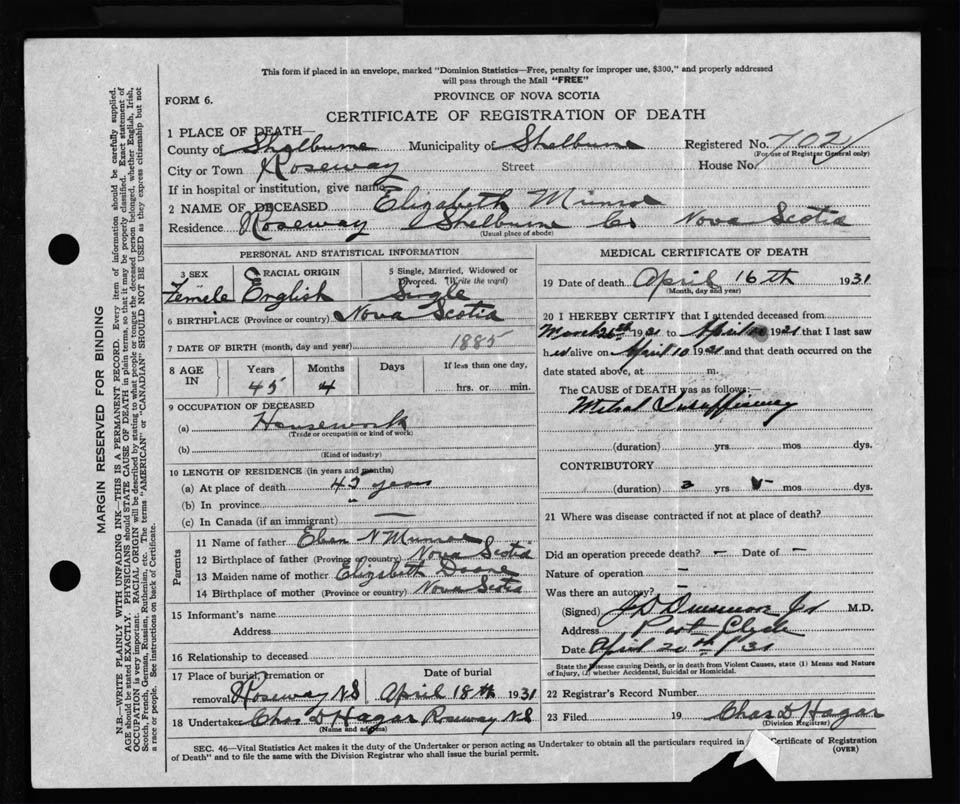 This form if placed in an envelope, marked "Dominion Statistics—Free, penalty for improper use, $300," and properly addressed
will pass through the Mail "FREE"
PROVINCE OF NOVA SCOTIA
FORM 6.
CERTIFICATE OF REGISTRATION OF DEATH
1 PLACE OF DEATH—
County of Shelburne Municipality of Shelburne Registered No. 702
(For use of Registrar General only)
City or Town Roseway Street House No.
If in hospital or institution, give name
2 NAME OF DECEASED Elizabeth Munro
Residence Roseway Shelburne Co Nova Scotia
(Usual place of abode)
PERSONAL AND STATISTICAL INFORMATION
3 SEX 4 RACIAL ORIGIN 5 Single, Married, Widowed or
Divorced. (Write the word)
Femele English Single
6 BIRTHPLACE (Province or country) Nova Scotia
7 DATE OF BIRTH (month, day and year) 1885
8 AGE IN Years Months Days If less than one day,
45 4 hrs. or min.
9 OCCUPATION OF DECEASED
(a) Housework
(Trade or occupation or kind of work)
(b)
(Kind of industry)
10 LENGTH OF RESIDENCE (in years and months)
(a) At place of death 45 years
(b) In province "
(c) In Canada (if an immigrant) —
Parents
11 Name of father Eben N Munro
12 Birthplace of father (Province or country) Nova Scotia
13 Maiden name of mother Elizabeth Doane
14 Birthplace of mother (Province or country) Nova Scotia
15 Informant's name
Address
16 Relationship to deceased
17 Place of burial, cremation or Date of burial
removal Roseway N.S April 18th 1931
18 Undertaker Chas D Hagar Roseway N.S
(Name and address)
MEDICAL CERTIFICATE OF DEATH
19 Date of death April 16th 1931
(Month, day and year)
20 I HEREBY CERTIFY that I attended deceased from
March 26th 1931 to April 1931 that I last saw
h er alive on April 10 1931 and that death occurred on the
date stated above, at m.
The CAUSE of DEATH was as follows:—
Mitral Insufficiency
(duration) yrs mos dys.
CONTRIBUTORY
(duration) yrs mos dys.
21 Where was disease contracted if not at place of death?
Did an operation precede death? — Date of —
Nature of operation —
Was there an autopsy? —
(Signed) M.D.
Address Port Clyde
Date April 20th/31
State the Disease causing Death, or in death from Violent Causes, state (1) Means and Nature
of Injury, (2) whether Accidental, Suicidal or Homicidal.
22 Registrar's Record Number
23 Filed 19 Chas D Hagar
(Division Registrar)
SEC. 46—Vital Statistics Act makes it the duty of the Undertaker or person acting as Undertaker to obtain all the particulars required in Certificate of Registration
of Death" and to file the same with the Division Registrar who shall issue the burial permit. (OVER)
MARGIN RESERVED FOR BINDING
N.B.—WRITE PLAINLY WITH UNFADING INK—THIS IS A PERMANENT RECORD. Every item of information should be carefully supplied.
AGE should be stated EXACTLY. PHYSICIANS should STATE CAUSE OF DEATH in plain terms, so that it may be properly classified. Exact statement of
OCCUPATION is very important. RACIAL ORIGIN will be described by stating to what people or tongue the deceased person belonged, whether English, Irish,
Scotch, French, German, Russian, Ruthenian, etc. The terms "AMERICAN" or "CANADIAN" SHOULD NOT BE USED as they express citizenship but not
a race or people. See instructions on back of Certificate.